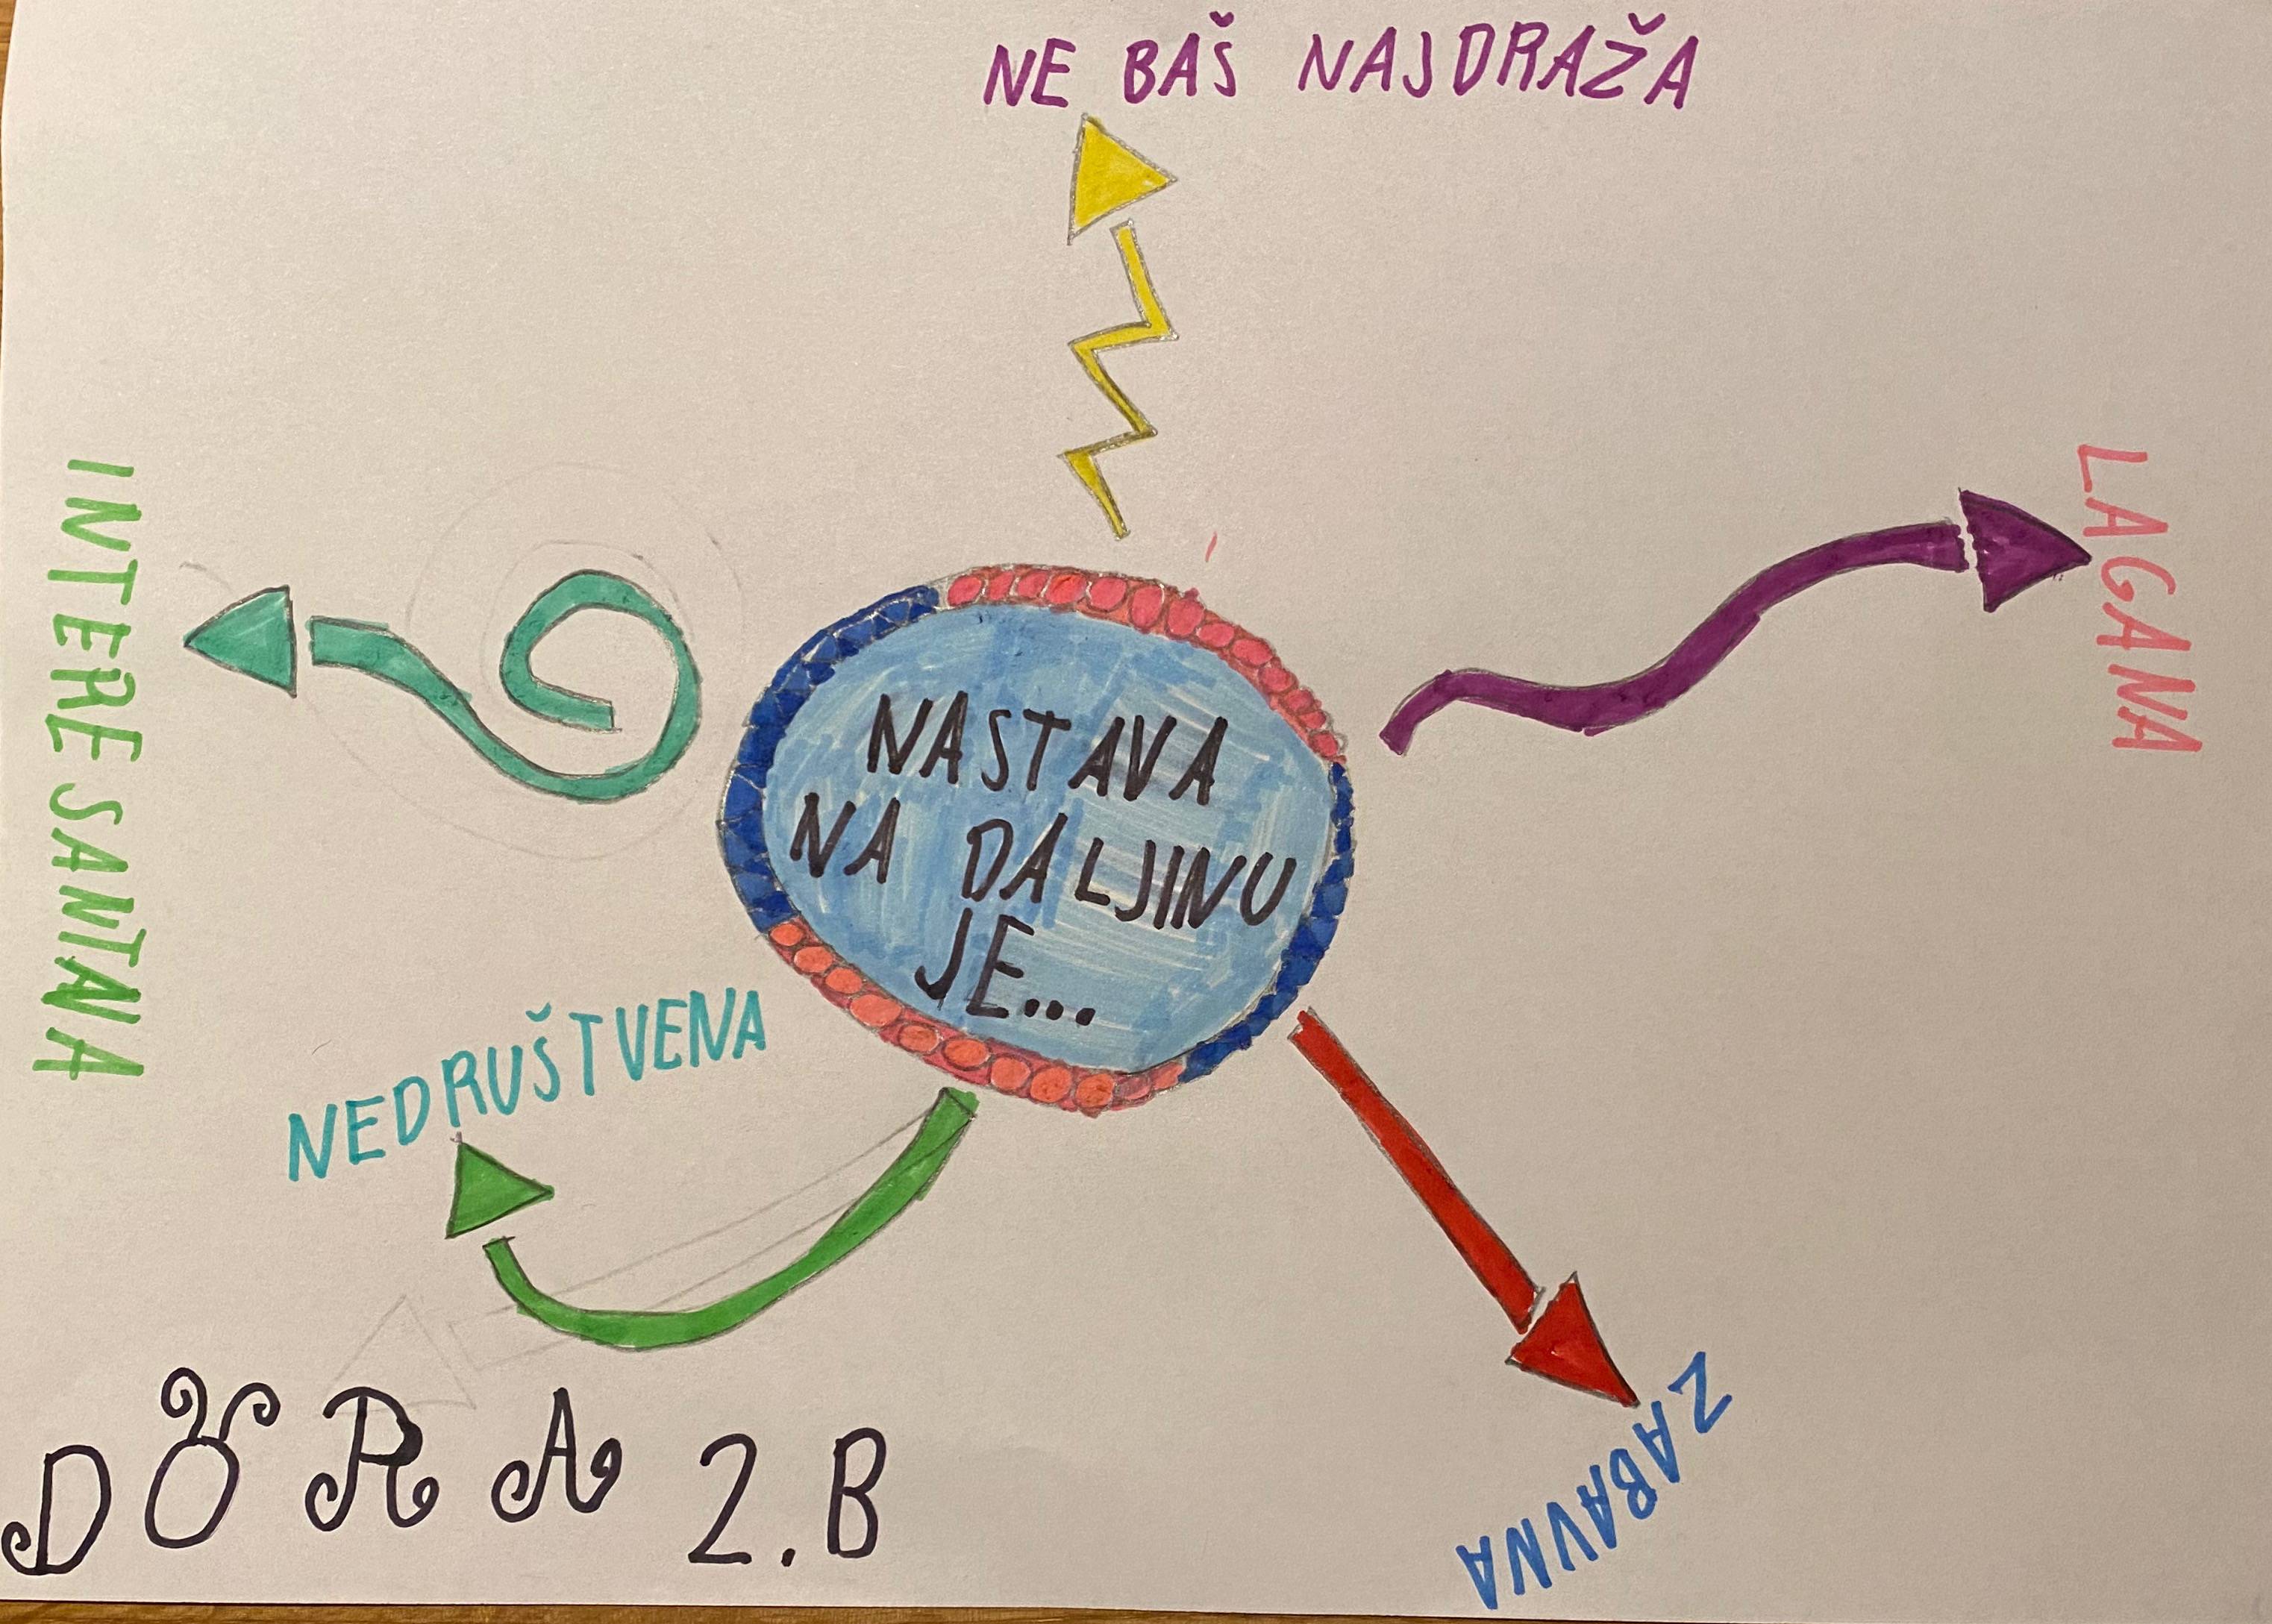 NE BAŠ NAJDRAŽA
LAGANA
INTERESANTNA
NASTAVA
NA DALJINU
JE...
NEDRUŠTVENA
ZABAVNA
DORA 2.B